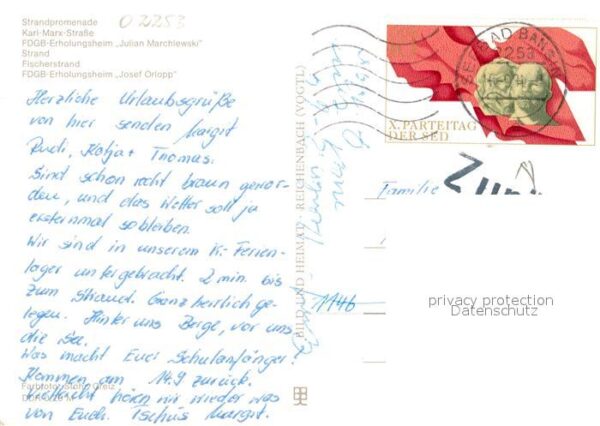 Strandpromenade
O 2253
Karl-Marx-Straße
FDGB-Erholungsheim „Julian Marchlewski“
Strand
Fischerstrand
FDGB-Erholungsheim „Josef Orlopp“
Herzliche Urlaubsgrüße
von hier senden Margit
Rudi, Katja + Thomas.
Sind schon recht braun gewor-
den, und das Wetter soll ja
erstenmal so bleiben.
Wir sind in unserem K.-Ferien-
lager untergebracht. 2 min. bis
zum Strand. Ganz herrlich ge-
legen. Hinter uns Berge, vor uns
die See.
Was macht Euer Schulanfänger?
Kommen am 14.9 zurück.
Vielleicht hören wir wieder was
von Euch. Tschüs Margit.
Farbfoto: Greiz
DDR
BILD UND HEIMAT REICHENBACH (VOGTL)
SEEBAD BANSIN
2253
X. PARTEITAG
DER SED
Familie
1146
privacy protection
Datenschutz